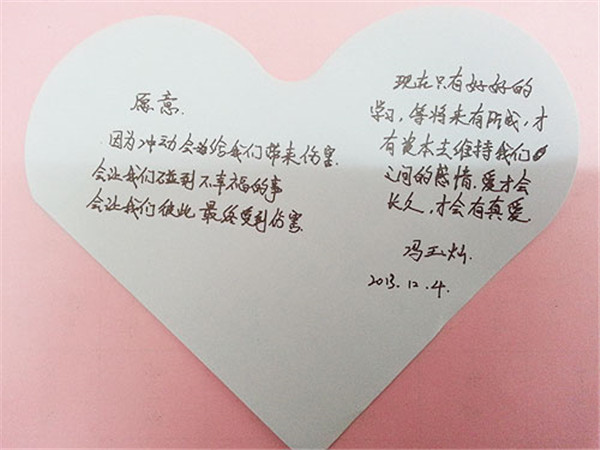 愿意.
因为冲动会为给我们带来伤害.
会让我们碰到不幸福的事
会让我们彼此最终受到伤害.
现在只有好好的
学习,等将来有所成,才
有资本去维持我们
之间的感情.爱才会
长久,才会有真爱.
冯玉灿
2013.12.4.